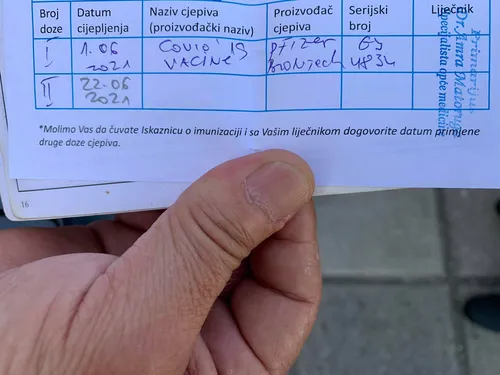 Broj doze Datum cijepljenja Naziv cjepiva (proizvođački naziv) Proizvođač cjepiva Serijski broj Liječnik
I 1.06 2021 Covid 19 VACINE Pfizer BIONTECH EY 4834
II 22.06 2021
Primarijus
Dr. Amra Matoruga
specijalista opće medicine
*Molimo Vas da čuvate Iskaznicu o imunizaciji i sa Vašim liječnikom dogovorite datum primjene
druge doze cjepiva.
16